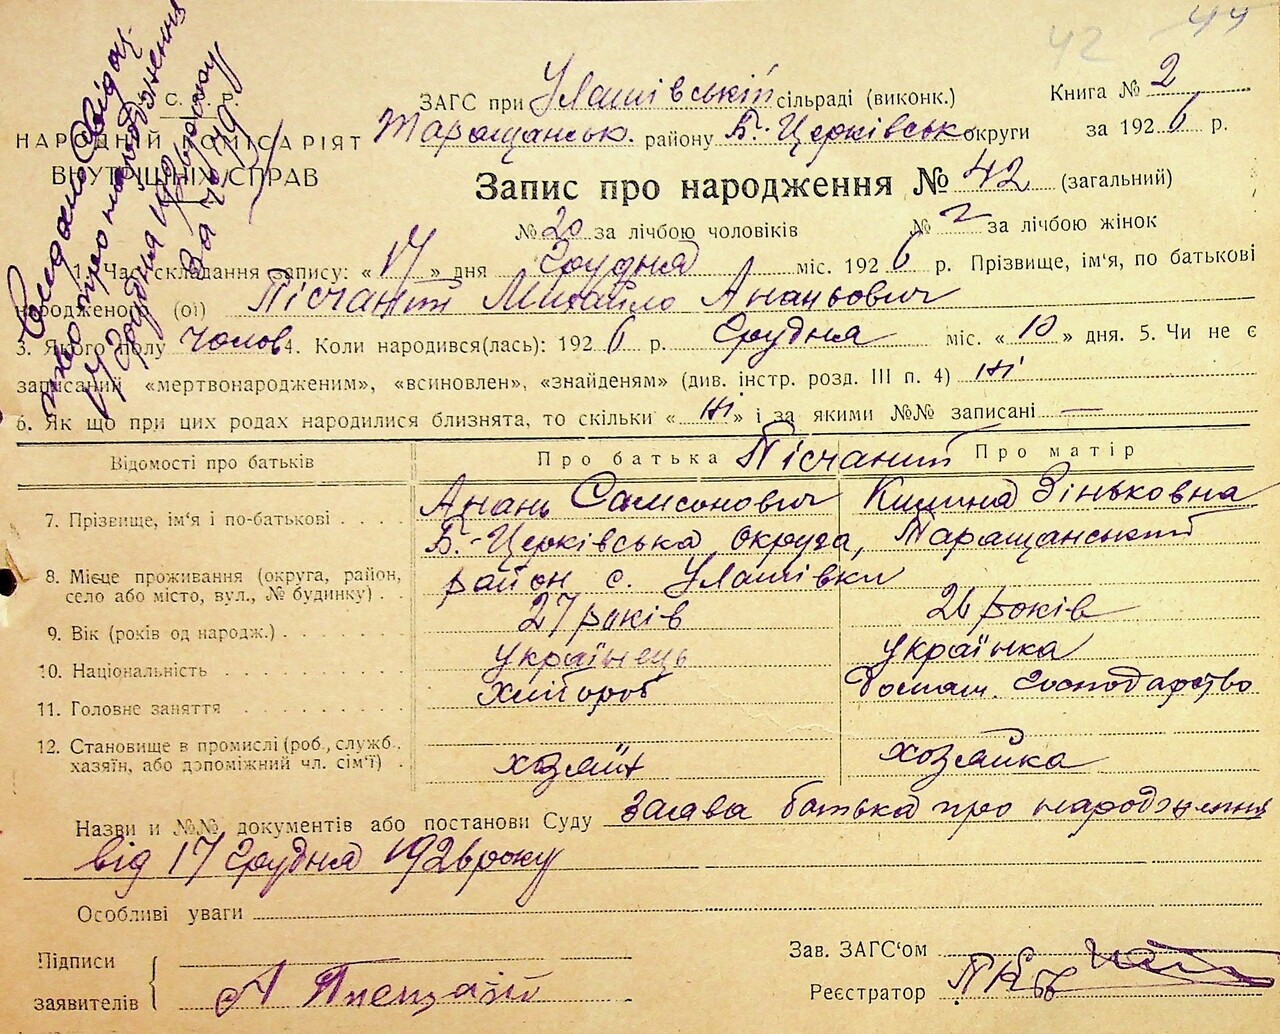 42 44
Видано свідоц-
тво про народження
17 Грудня 1926 року
за № 79
С. Р.
НАРОДНІЙ КОМІСАРІЯТ
ВНУТРІШНІХ СПРАВ
ЗАГС при Улашівській сільраді (виконк.) Книга № 2
Таращанськ. району Б.-Церківськ округи за 1926 р.
Запис про народження № 42 (загальний)
№ 20 за лічбою чоловіків № 2 за лічбою жінок
1. Час складання запису: «17» дня Грудня міс. 1926 р. Прізвище, ім'я, по батькові
народженого (ої) Пісчаний Михайло Ананьович
3. Якого полу чолов 4. Коли народився(лась): 1926 р. Грудня міс. «10» дня. 5. Чи не є
записаний «мертвонародженим», «всиновлен», «знайденям» (див. інстр. розд. III п. 4) ні
6. Як що при цих родах народилися близнята, то скільки «ні» і за якими №№ записані —
Відомості про батьків Про батька Пісчаний Про матір
7. Прізвище, ім'я і по-батькові Анань Самсонович Килина Зіньковна
Б.-Церківська округа, Таращанський
8. Місце проживання (округа, район, район с. Улашівки
село або місто, вул., № будинку)
9. Вік (років од народж.) 27 років 26 років
10. Національність українець українка
11. Головне заняття хлібороб Домаш. господарство
12. Становище в промислі (роб., служб.
хазяїн, або допоміжний чл. сім'ї) хозяїн хозяйка
Назви и №№ документів або постанови Суду Заява батька про народження
від 17 Грудня 1926 року
Особливі уваги
Підписи Зав. ЗАГС'ом
заявителів А Пісщаній Реєстратор